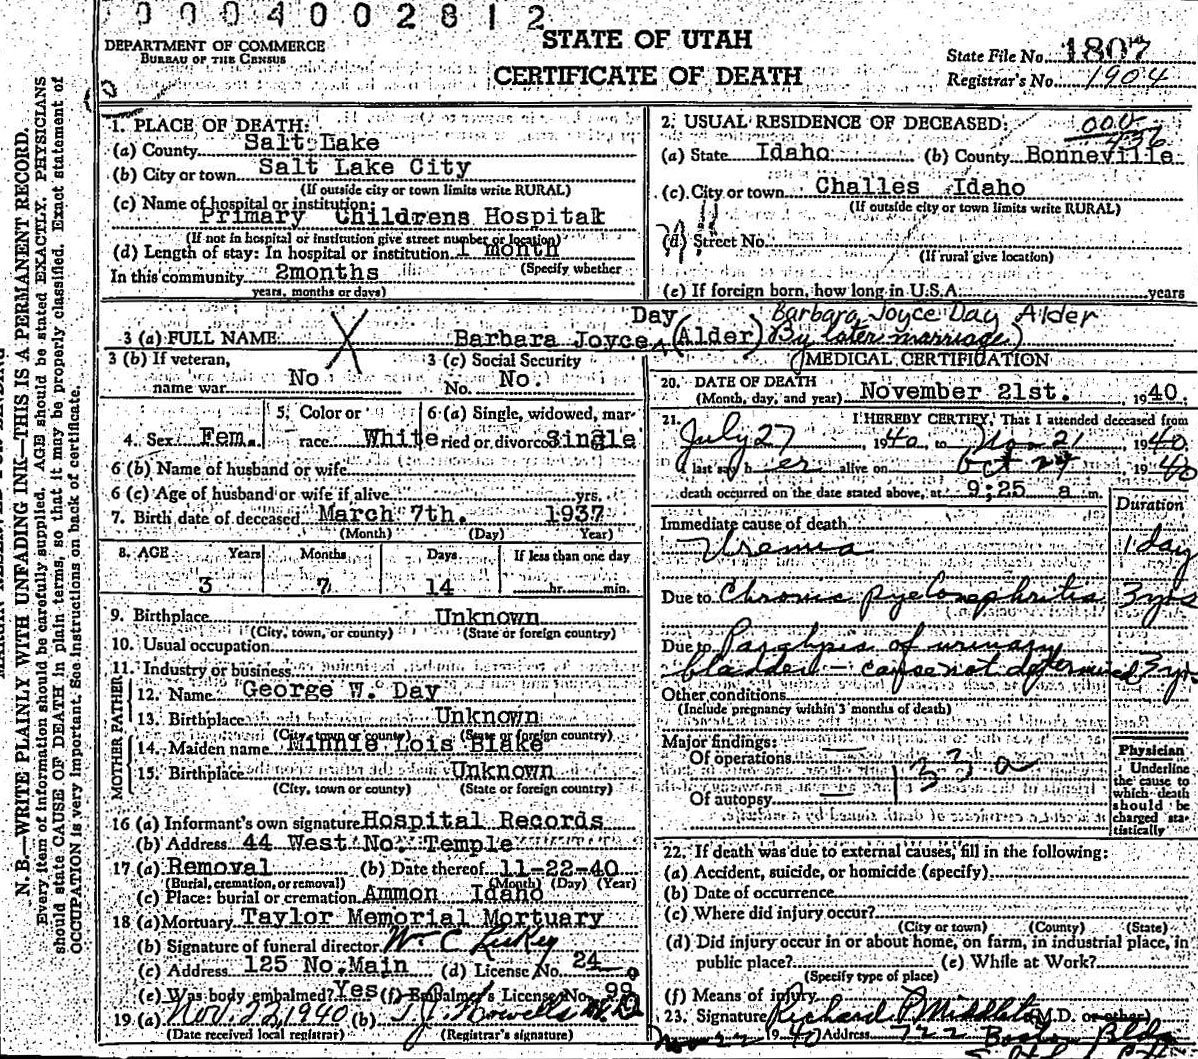 0004002812
DEPARTMENT OF COMMERCE
BUREAU OF THE CENSUS
STATE OF UTAH
CERTIFICATE OF DEATH
State File No. 1807
Registrar's No. 1904
N. B.—WRITE PLAINLY WITH UNFADING INK—THIS IS A PERMANENT RECORD.
Every item of information should be carefully supplied. AGE should be stated EXACTLY. PHYSICIANS
should state CAUSE OF DEATH in plain terms, so that it may be properly classified. Exact statement of
OCCUPATION is very important. See instructions on back of certificate.
1. PLACE OF DEATH:
(a) County Salt Lake
(b) City or town Salt Lake City
(If outside city or town limits write RURAL)
(c) Name of hospital or institution:
Primary Childrens Hospital
(If not in hospital or institution give street number or location)
(d) Length of stay: In hospital or institution 1 month
(Specify whether
In this community 2months
years, months or days)
2. USUAL RESIDENCE OF DECEASED:
000
436
(a) State Idaho (b) County Bonneville
(c) City or town Challes Idaho
(If outside city or town limits write RURAL)
(d) Street No.
(If rural give location)
(e) If foreign born, how long in U.S.A. years
3 (a) FULL NAME Barbara Joyce Day (Alder) By later marriage)
Barbara Joyce Day Alder
3 (b) If veteran,
name war No
3 (c) Social Security
No. No.
4. Sex Fem.
5. Color or
race White
6 (a) Single, widowed, mar-
ried or divorced Single
6 (b) Name of husband or wife
6 (c) Age of husband or wife if alive yrs.
7. Birth date of deceased March 7th. 1937
(Month) (Day) Year)
8. AGE Years Months Days If less than one day
3 7 14 hr. min.
9. Birthplace Unknown
(City, town, or county) (State or foreign country)
10. Usual occupation
11. Industry or business
FATHER
12. Name George W. Day
13. Birthplace Unknown
(City, town or county) (State or foreign country)
MOTHER
14. Maiden name Minnie Lois Blake
15. Birthplace Unknown
(City, town or county) (State or foreign country)
16 (a) Informant's own signature Hospital Records
(b) Address 44 West No. Temple
17 (a) Removal (b) Date thereof 11-22-40
(Burial, cremation, or removal) (Month) (Day) (Year)
(c) Place: burial or cremation Ammon Idaho
18 (a) Mortuary Taylor Memorial Mortuary
(b) Signature of funeral director W. C.
(c) Address 125 No. Main (d) License No. 24
(e) Was body embalmed? Yes (f) Embalmer's License No. 99
19 (a) Nov. 22, 1940 (b) T. J. Howells M.D.
(Date received local registrar) (Registrar's signature)
MEDICAL CERTIFICATION
20. DATE OF DEATH
(Month, day, and year) November 21st. 1940
21. I HEREBY CERTIFY, That I attended deceased from
July 27 1940, to Nov 21 1940
I last saw h er alive on Oct 24 1940
death occurred on the date stated above, at 9:25 a m.
Duration
Immediate cause of death
Uremia 1 day
Due to Chronic pyelonephritis 3 yrs
Due to Paralysis of urinary
bladder - cause not determined 3 yrs
Other conditions
(Include pregnancy within 3 months of death)
Major findings:
Of operations
133a
Of autopsy
Physician
Underline
the cause to
which death
should be
charged sta-
tistically
22. If death was due to external causes, fill in the following:
(a) Accident, suicide, or homicide (specify)
(b) Date of occurrence
(c) Where did injury occur?
(City or town) (County) (State)
(d) Did injury occur in or about home, on farm, in industrial place, in
public place? (e) While at Work?
(Specify type of place)
(f) Means of injury
23. Signature Richard P Middleton (M.D. or other)
Nov 22 1940 Address 722 Boston Bldg